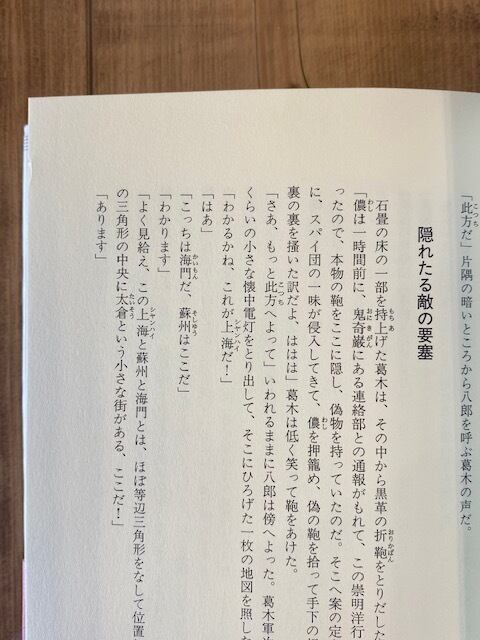 「此方だ」片隅の暗いところから八郎を呼ぶ葛木の声だ。
隠れたる敵の要塞
石畳の床の一部を持上げた葛木は、その中から黒革の折鞄をとりだした
「儂は一時間前に、鬼奇巌にある連絡部との通報がもれて、この崇明洋行
ったので、本物の鞄をここに隠し、偽物を持っていたのだ。そこへ案の定
に、スパイ団の一味が侵入してきて、儂を押籠め、偽の鞄を拾って手下の
裏の裏を搔いた訳だよ、ははは」葛木は低く笑って鞄をあけた。
「さあ、もっと此方へよって」いわれるままに八郎は傍へよった。葛木軍
くらいの小さな懐中電灯をとり出して、そこにひろげた一枚の地図を照した
「わかるかね、これが上海だ!」
「はあ」
「こっちは海門だ、蘇州はここだ」
「わかります」
「よく見給え、この上海と蘇州と海門とは、ほぼ等辺三角形をなして位置
の三角形の中央に太倉という小さな街がある、ここだ!」
「あります」